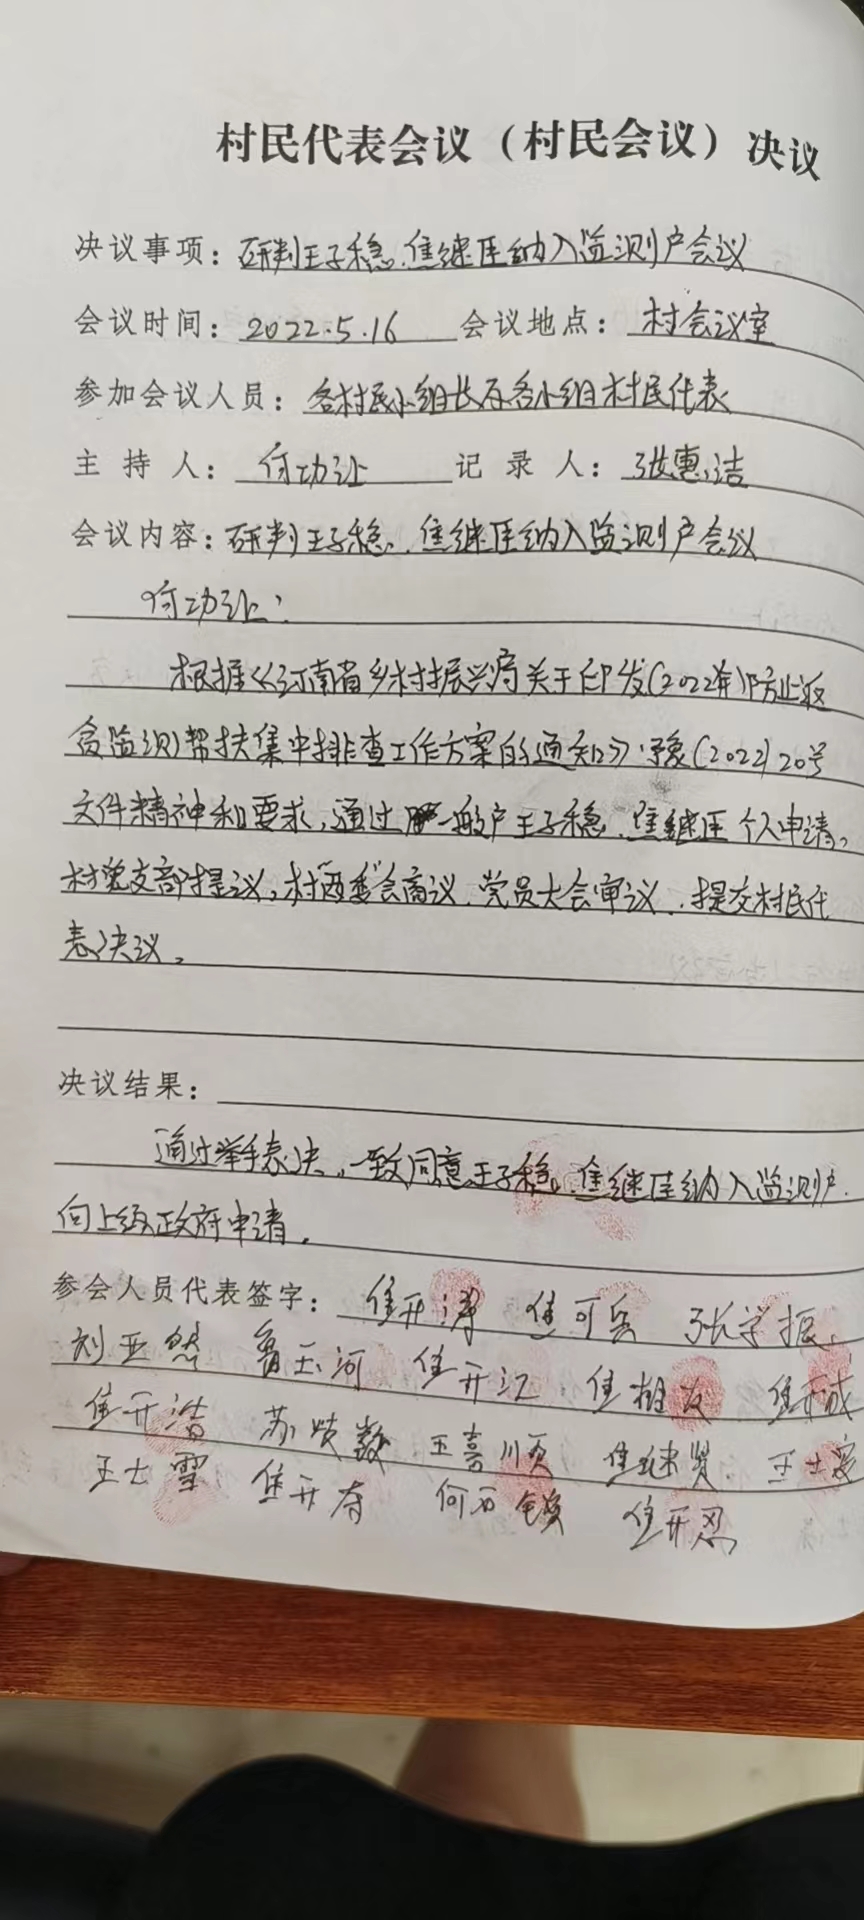 村民代表会议（村民会议）决议
决议事项：研判王子稳、焦继匡纳入监测户会议
会议时间：2022.5.16 会议地点：村会议室
参加会议人员：各村民小组长及各小组村民代表
主持人：何功让 记录人：张惠洁
会议内容：研判王子稳、焦继匡纳入监测户会议
何功让：
根据《河南省乡村振兴局关于印发(2022年)防止返
贫监测帮扶集中排查工作方案的通知》豫(2022)20号
文件精神和要求，通过一般户王子稳、焦继匡个人申请，
村党支部提议，村两委会商议、党员大会审议、提交村民代
表决议。
决议结果：
通过举手表决，一致同意王子稳、焦继匡纳入监测户，
向上级政府申请。
参会人员代表签字：焦开 焦可兵 张学振
刘亚然 鲁玉河 焦开江 焦 焦开成
焦开浩 苏 王喜顺 焦继贤 王士
王士雪 焦开存 何 焦开恩